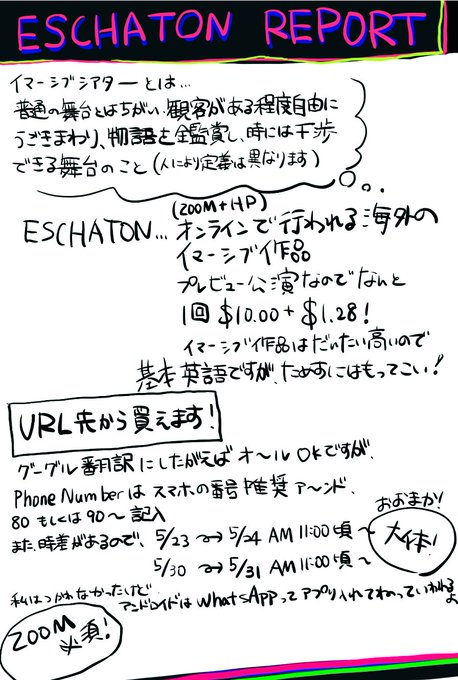 ESCHATON REPORT
イマーシブシアターとは...
普通の舞台とはちがい、観客がある程度自由に
うごきまわり、物語を鑑賞し、時には干渉
できる舞台のこと(人により定義は異なります)
(ZOOM+HP)
ESCHATON... オンラインで行われる海外の
イマーシブ作品
プレビュー公演なのでなんと
1回 $10.00 + $1.28!
イマーシブ作品はだいたい高いので
基本英語ですが、ためすにはもってこい!
URL先から買えます!
グーグル翻訳にしたがえばオールOKですが、
Phone Numberはスマホの番号推奨 アーンド、
80 もしくは 90~ 記入
また、時差があるので、5/23 → 5/24 AM 11:00頃~
5/30 → 5/31 AM 11:00頃~
おおまか!
大体!
私はつかわなかったけど
アンドロイドは WhatsAppってアプリ入れてねっていわれるよ
ZOOM
必須!